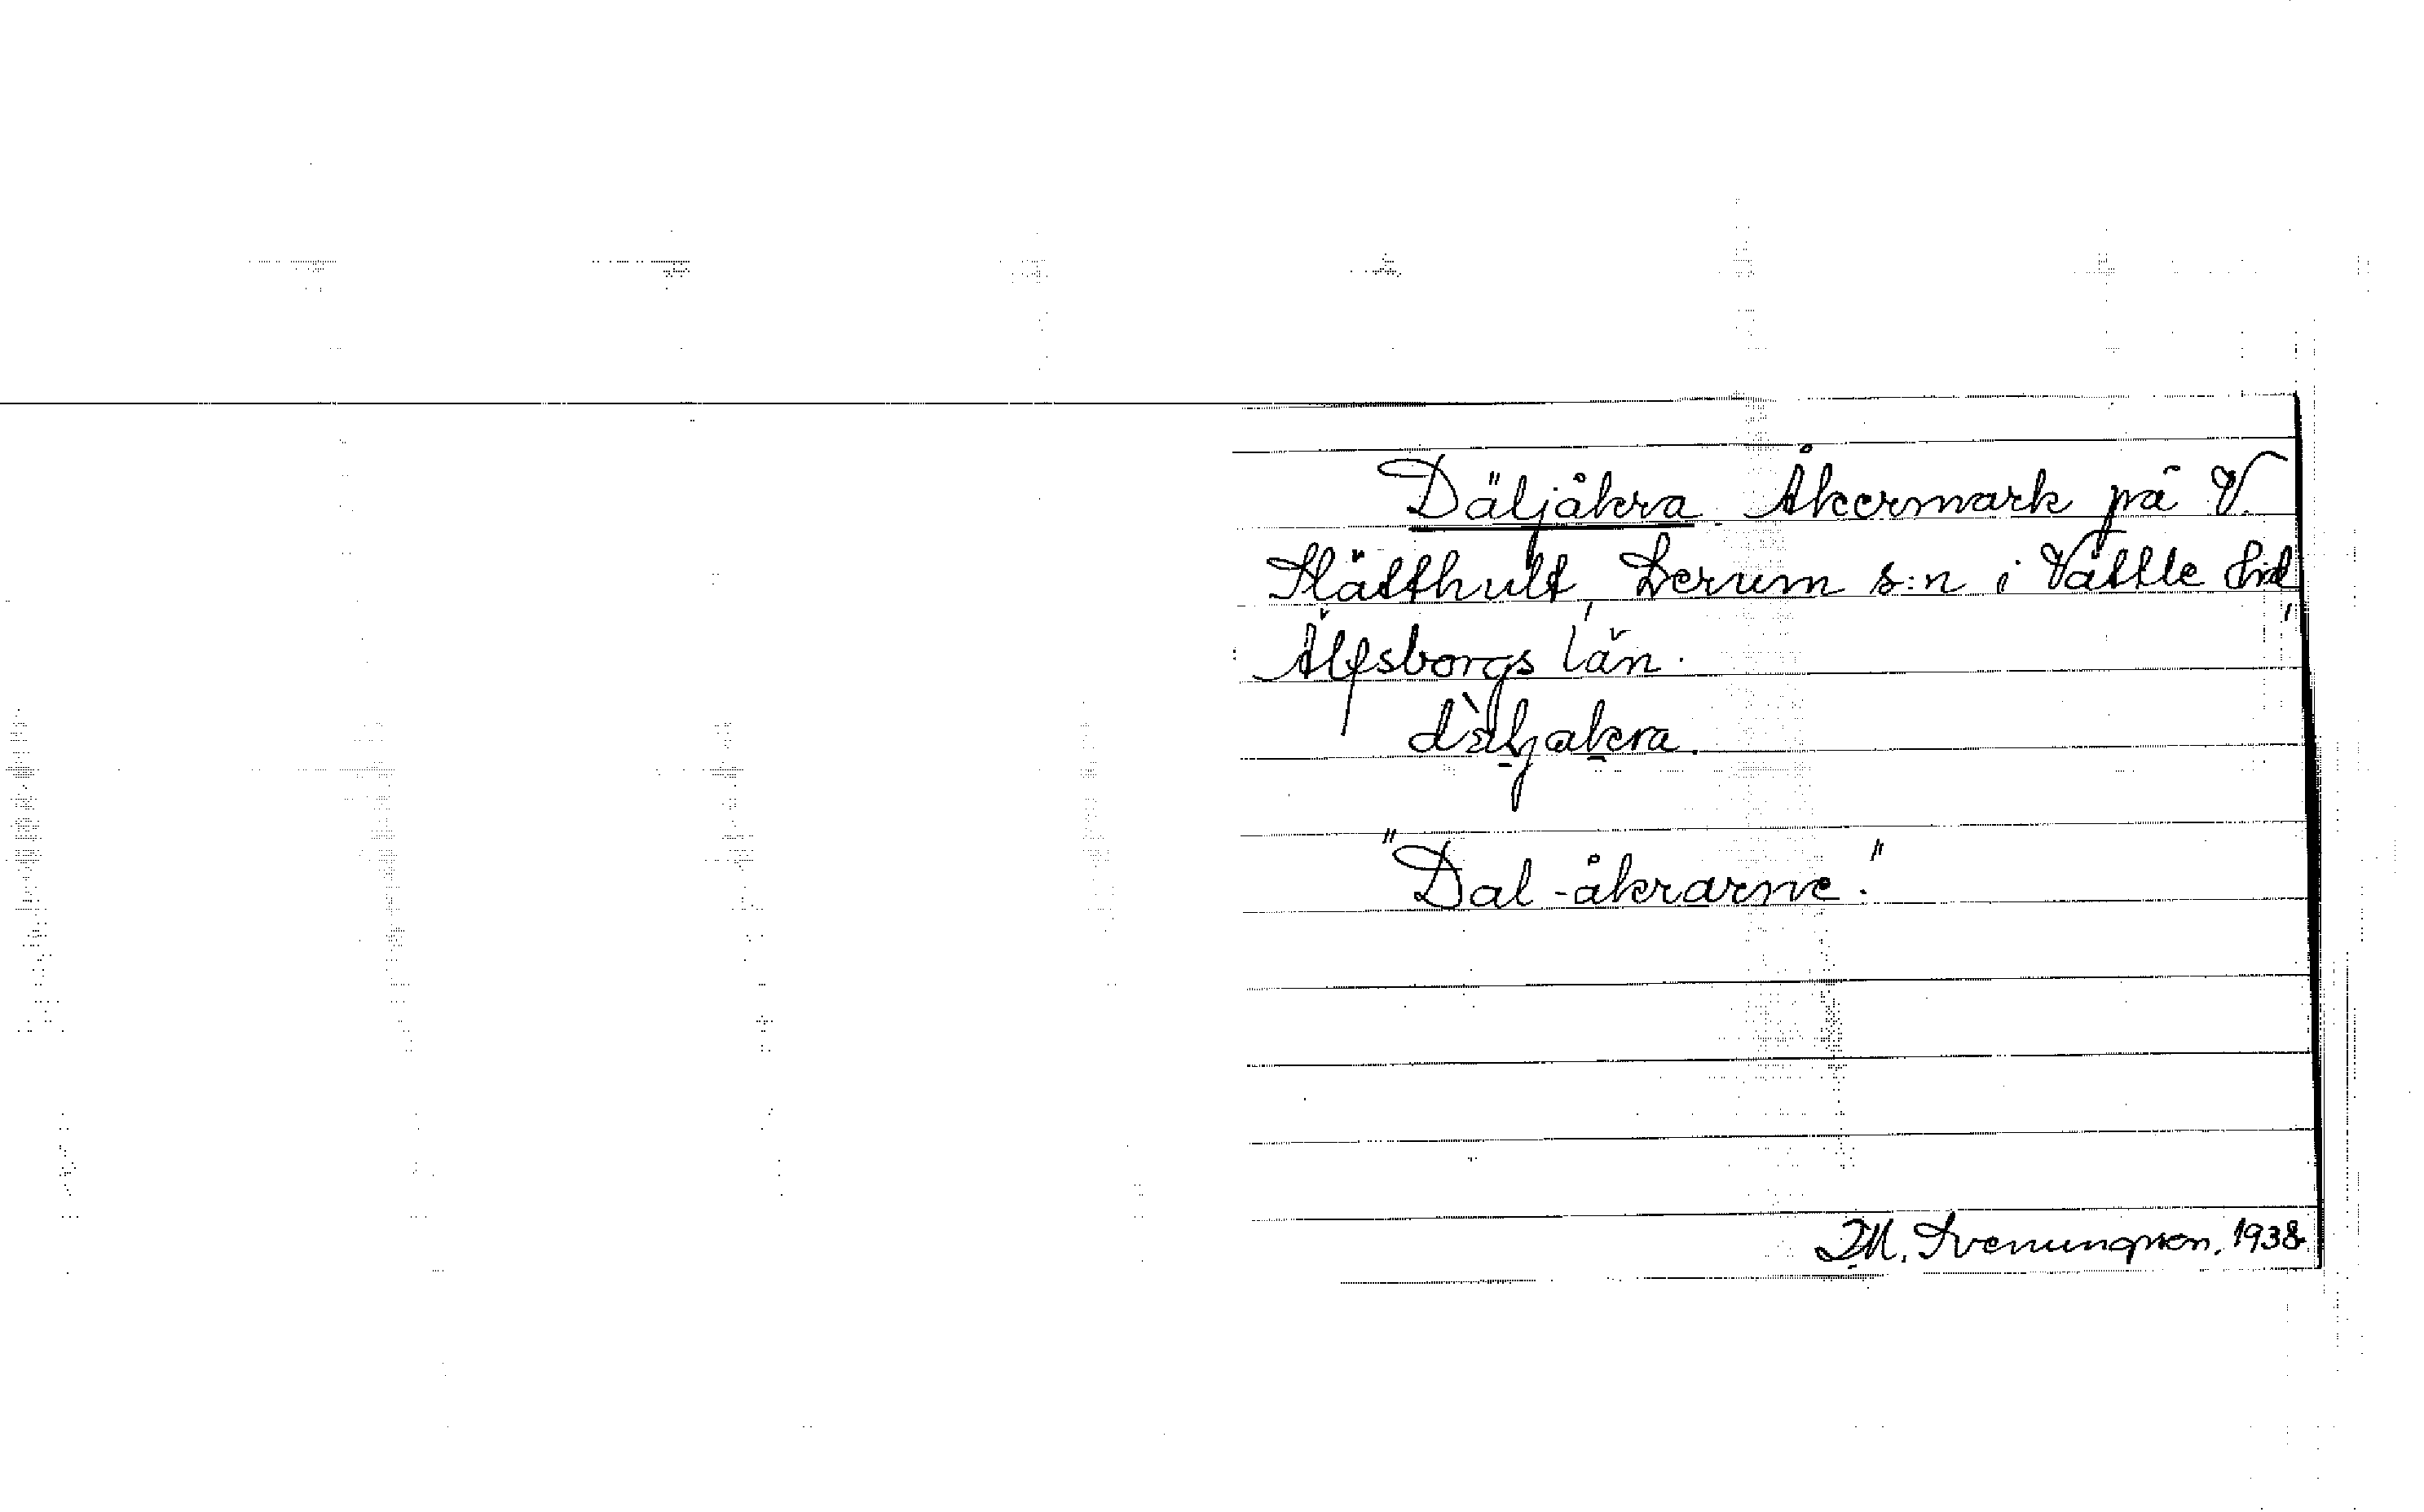 Däljåkra. Åkermark på V.
Slätthult, Lerum s:n i Vättle hd,
Älfsborgs län.
"Dal-åkrarne."
Svenungsson, 1938